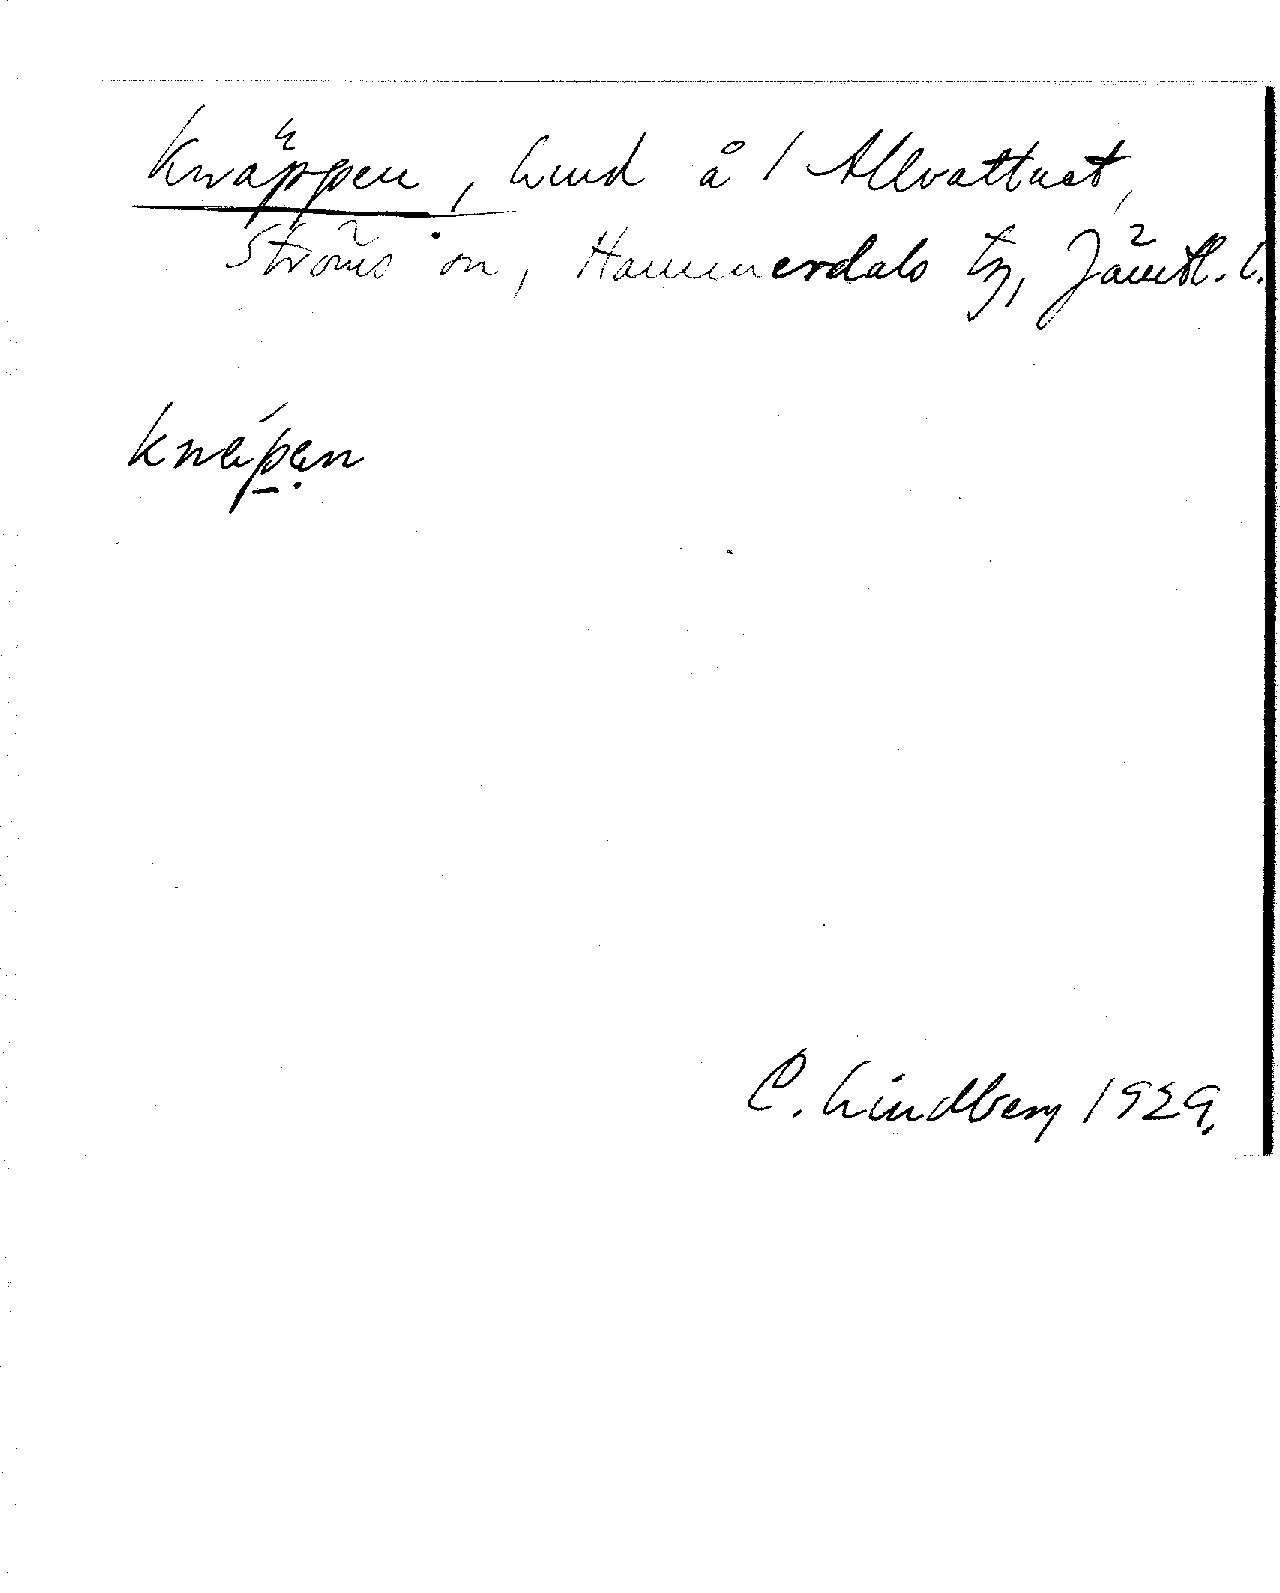 Knäppen, lund å / Allvattnet,
Ströms sn, Hammerdals tg, Jämtl. l.
knäpen
C. Lindberg 1929.